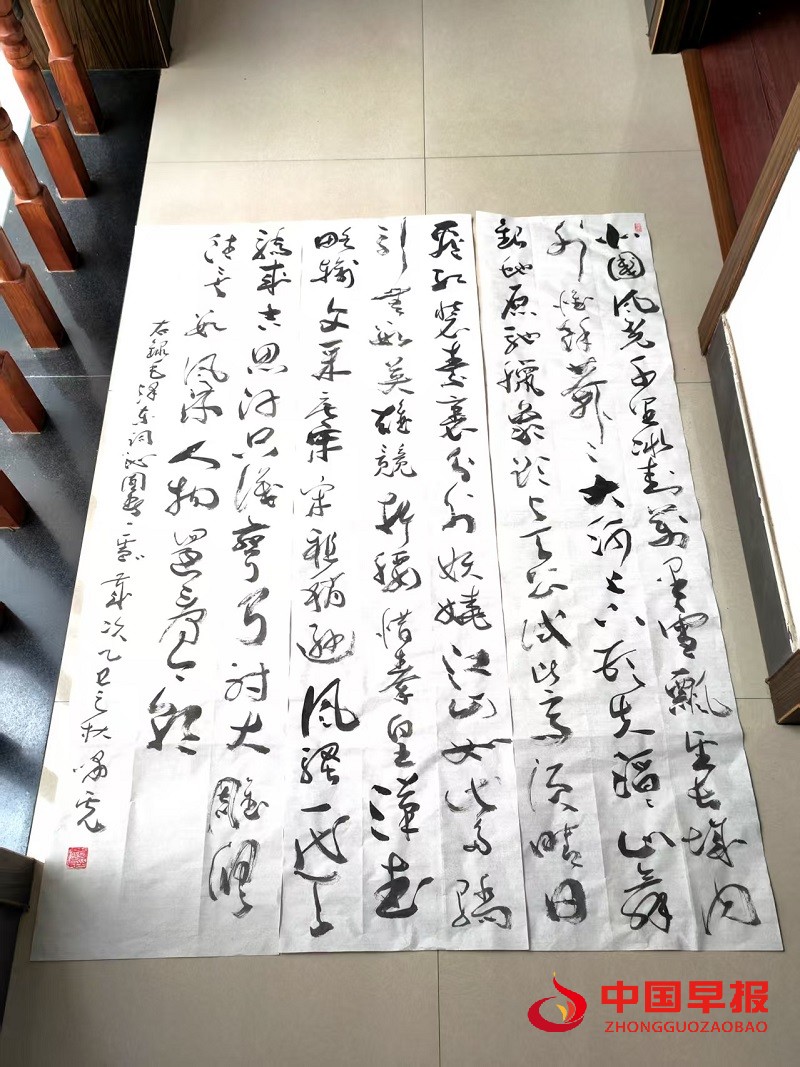 北國风光千里冰封万里雪飘望长城内
外惟馀莽莽大河上下顿失滔滔山舞
银蛇原驰蜡象欲与天公试比高须晴日
看红装素裹分外妖娆江山如此多骄
引无数英雄竞折腰惜秦皇汉武
略输文采唐宗宋祖稍逊风骚一代天
骄成吉思汗只识弯弓射大雕俱
往矣数风流人物还看今朝
右录毛泽东词沁园春雪 岁次乙巳之秋 啸虎
中国早报
ZHONGGUOZAOBAO